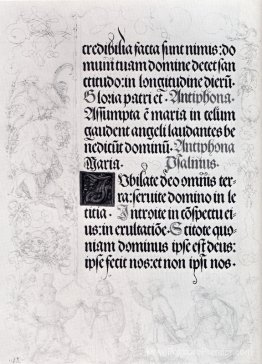 credibilia facta sunt nimis: do
mum tuam domine decet san
ctitudo: in longitudine dierū.
Gloria patri et. Antiphona.
Assumpta ē maria in celum
gaudent angeli laudantes be
nedicūt dominū. Antiphona
Maria. Psalmus.
Iubilate deo omnis ter
ra: seruite domino in le
titia. Introite in cōspectu ei
us: in exultatiōe. Scitote quo
niam dominus ipse est deus:
ipse fecit nos: et non ipsi nos.